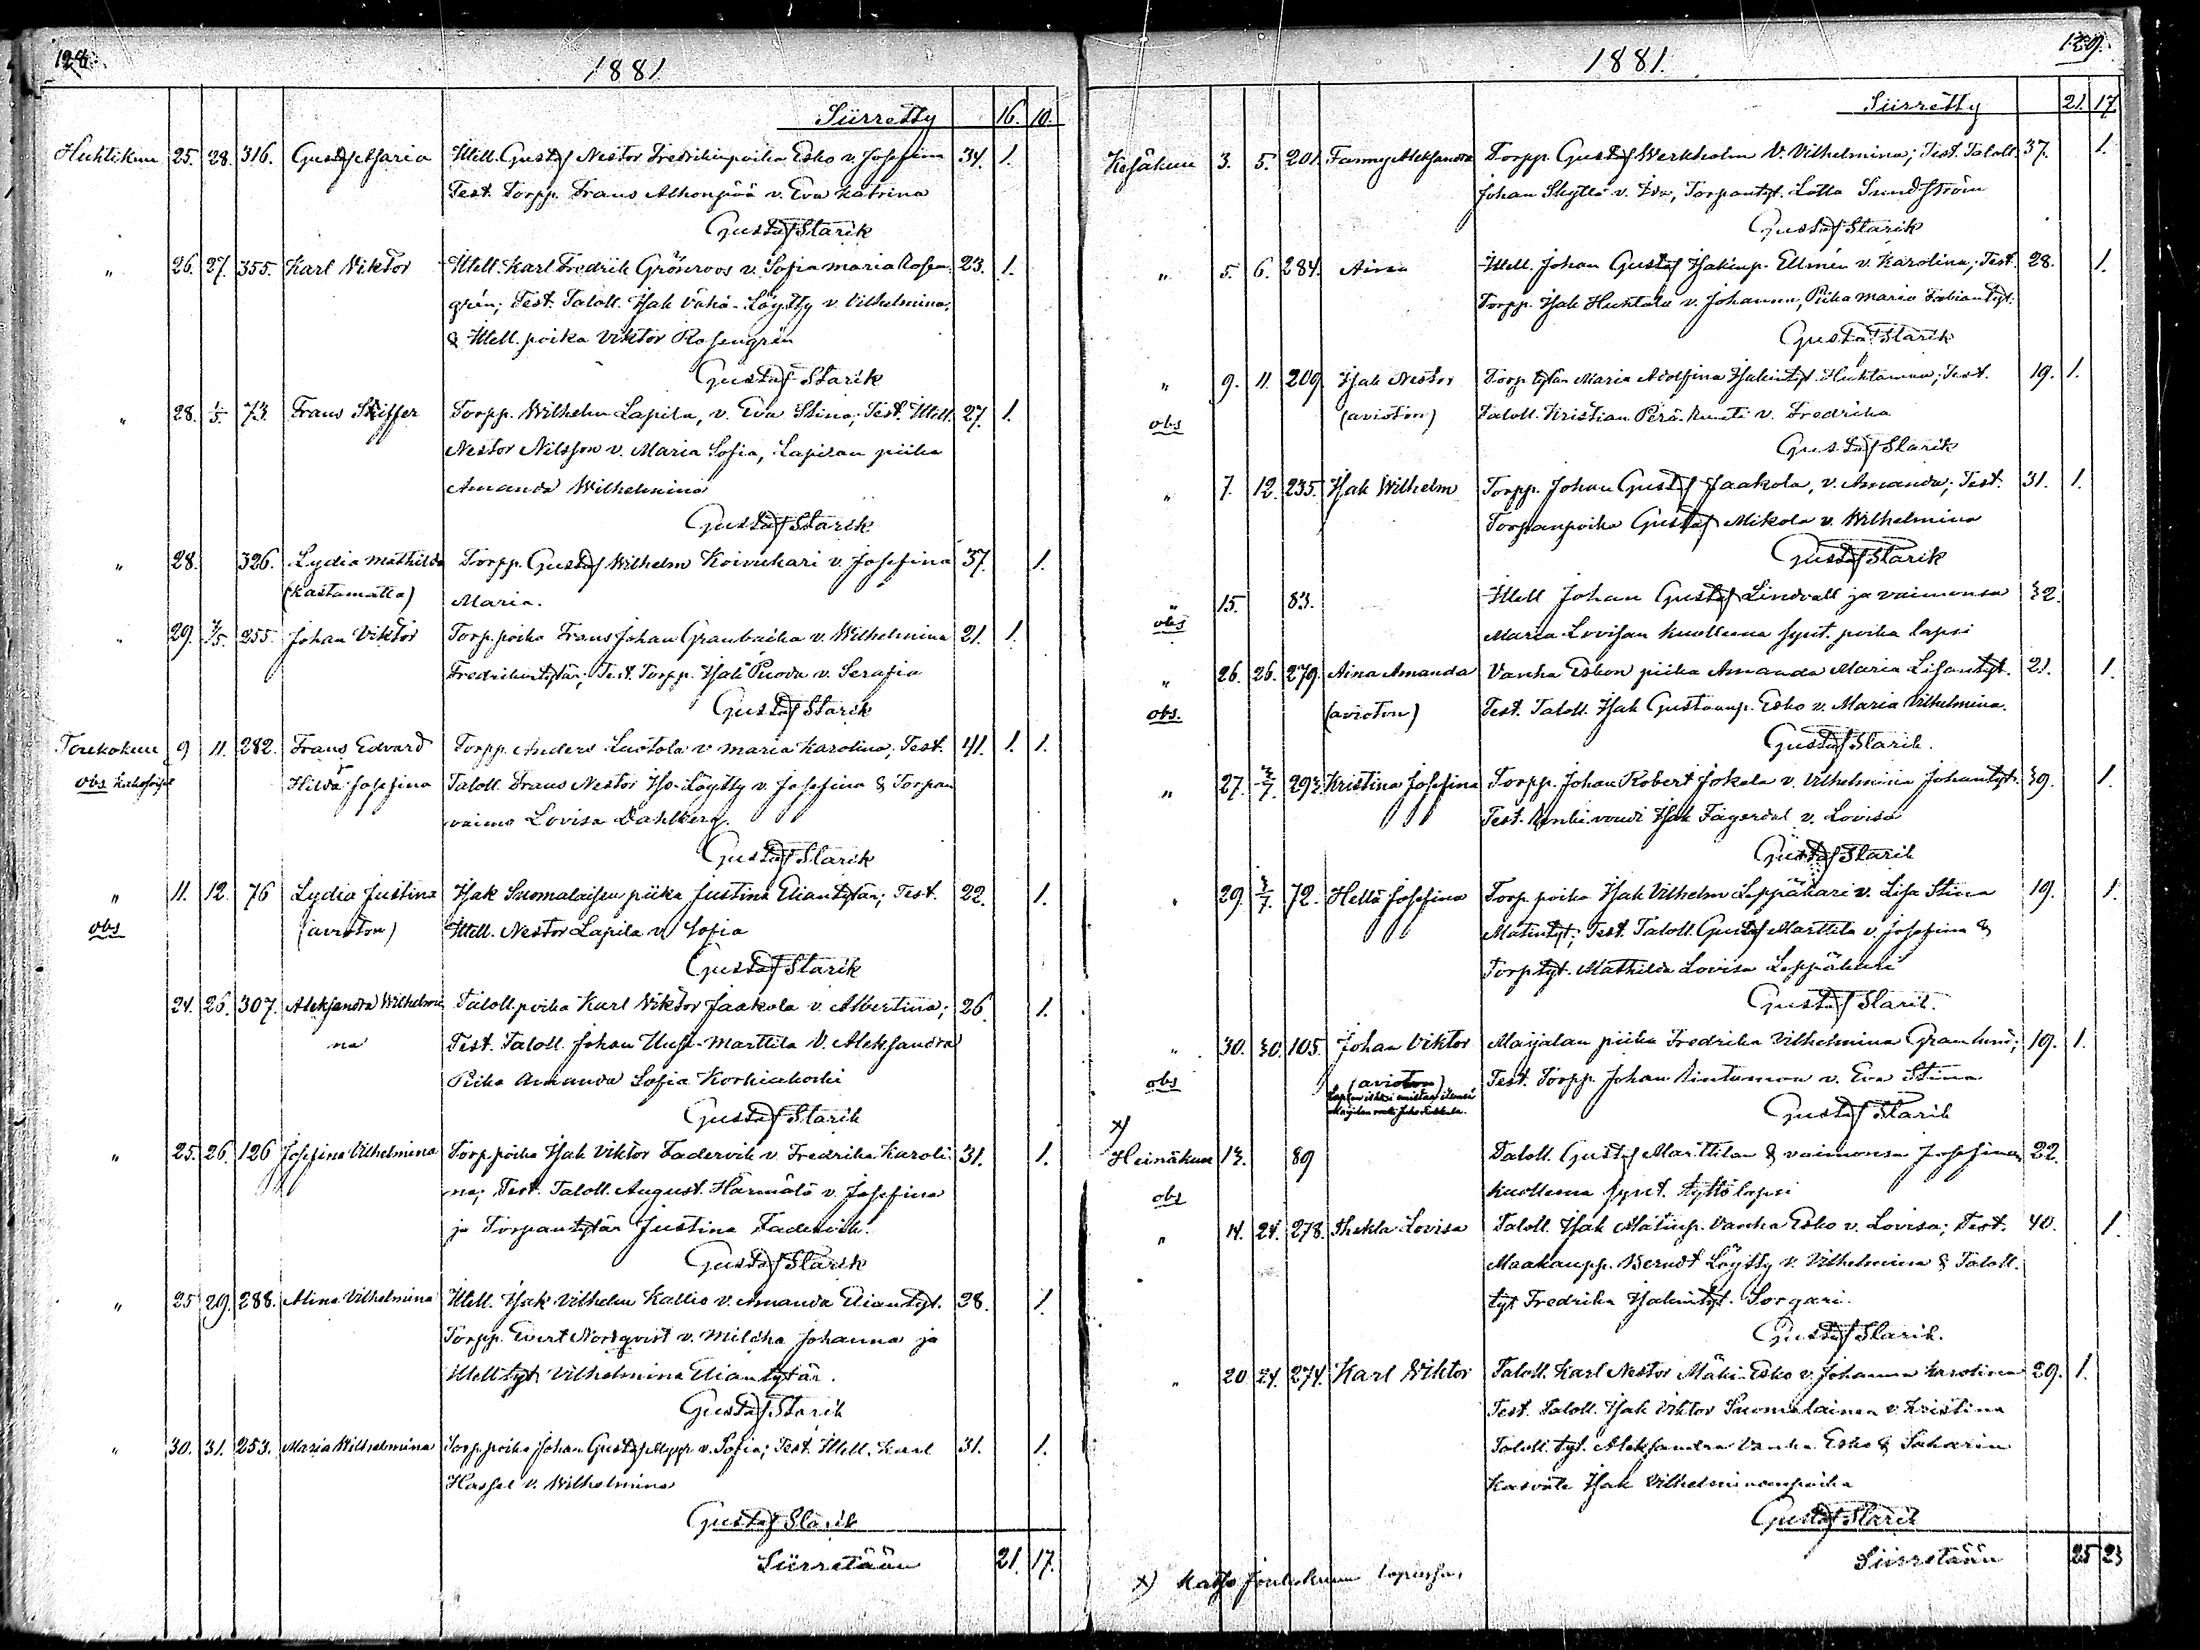 128.
1881
Siirretty 16. 10.
Huhtikuu 25. 28. 316. Gustaf Maria Itsell. Gustaf Nestor Fredrikinpoika Esko v. Josefina 34. 1.
Test. Torpp. Frans Alhonpää v. Eva Katrina
Gustaf Starik
" 26. 27. 355. Karl Viktor Itsell. Karl Fredrik Grönroos v. Sofia Maria Rosen- 23. 1.
grén; Test. Taloll. Isak Vähä-Löytty v. Vilhelmina,
& Itsell. poika Viktor Rosengrén
Gustaf Starik
" 28. 1/5. 73 Frans Torpp. Wilhelm Lapila, v. Eva Stina; Test. Itsell. 27. 1.
Nestor Nilsson v. Maria Sofia, Lapilan piika
Amanda Wilhelmina
Gustaf Starik
" 28. 326. Lydia Mathilda Torpp. Gustaf Wilhelm Koivukari v. Josefina 37. 1.
(kastamatta) Maria.
" 29. 255. Johan Viktor Torp. poika Frans Johan Granbacka v. Wilhelmina 21. 1.
Fredrikintytär; Test. Torpp. Isak Puova v. Serafia
Gustaf Starik
Toukokuu 9 11. 282. Frans Edvard Torpp. Anders Luotola v. Maria Karolina; Test. 41. 1. 1.
obs kaksoiset Hilda Josefina Taloll. Frans Nestor Iso-Löytty v. Josefina & Torpan
vaimo Lovisa Dahlberg.
Gustaf Starik
" 11. 12. 76 Lydia Justina Isak Suomalaisen piika Justina Eliantytär; Test. 22. 1.
obs (avioton) Itsell. Nestor Lapila v. Sofia
Gustaf Starik
24. 26. 307. Aleksandra Wilhelmi- Taloll. poika Karl Viktor Jaakola v. Albertina; 26. 1.
na Test. Taloll. Johan Uusi-Marttila v. Aleksandra
Piika Amanda Sofia Korkiakoski
Gustaf Starik
" 25. 26. 126 Josefina Vilhelmina Torp poika Isak Viktor Fadervik v. Fredrika Karoli- 31. 1.
na; Test. Taloll. August. Härmälä v. Josefina
ja Torpantytär Justina Fadervik.
Gustaf Starik
" 25 29. 288. Alina Vilhelmina Itsell. Isak Vilhelm Kallio v. Amanda Eliantyt. 28. 1.
Torpp. Evert Nordqvist v. Milcha Johanna ja
Itsell tyt. Vilhelmina Eliantytär.
Gustaf Starik
" 30. 31. 253. Maria Wilhelmina Torp poika Johan Gustaf v. Sofia; Test. Itsell. Karl 31. 1.
Hassel v. Wilhelmina
Gustaf Starik
Siirretään 21. 17.
129.
1881.
Siirretty 21. 17.
Kesäkuu 3. 5. 201. Fanny Aleksandra Torpp. Gustaf Werkholm v. Vilhelmina; Test. Taloll. 37. 1.
Johan Skyttä v. Ida, Torpantyt. Lotta Sundström
Gustaf Starik
" 5. 6. 284. Aina Itsell. Johan Gustaf Isakinp. Ellmén v. Karolina; Test. 28. 1.
Torpp. Isak Huhtala v. Johanna, Piika Maria Fabiantyt.
Gustaf Starik
" 9. 11. 209 Isak Nestor Torp tytär Maria Adolfina Isakintyt. ; Test. 19. 1.
obs (avioton) Taloll. Kristian Perä-Kunsti v. Fredrika
Gustaf Starik
" 7. 12. 235. Isak Wilhelm Torpp. Johan Gustaf Jaakola, v. Amanda; Test. 31. 1.
Torpanpoika Gustaf Mikola v. Wilhelmina
Gustaf Starik
" 15. 83. Itsell Johan Gustaf Lindvall ja vaimonsa 32.
obs Maria Lovisan kuolleena synt. poika lapsi
" 26. 26. 279. Aina Amanda Vanha Eskon piika Amanda Maria Lisantyt. 21. 1.
obs. (avioton) Test. Taloll. Isak Gustavinp. Esko v. Maria Vilhelmina.
Gustaf Starik.
" 27. 3/7. 293. Kristina Josefina Torpp. Johan Robert Jokela v. Vilhelmina Johantyt. 39. 1.
Test. Isak Fagerdal v. Lovisa
Gustaf Starik
" 29. 3/7. 72. Hellä Josefina Torp. poika Isak Vilhelm Leppäkari v. Lisa Stina 19. 1.
Matintyt; Test. Taloll. Gustaf Marttila v. Josefina &
Torp tyt. Mathilda Lovisa Leppäkari
Gustaf Starik.
" 30. 30. 105. Johan Viktor Maijalan piika Fredrika Vilhelmina Granlund; 19. 1.
obs (avioton) Test. Torpp. Johan Rintamaa v. Eva Stina
Gustaf Starik
x)
Heinäkuu 13. 89 Taloll. Gustaf Marttilan & vaimonsa Josefinan 22.
obs kuolleena synt. tyttö lapsi
" 14. 24. 278. Thekla Lovisa Taloll. Isak Matinp. Vanha Esko v. Lovisa; Test. 40. 1.
Maakaupp. Berndt Löytty v. Vilhelmina & Taloll.
tyt Fredrika Isakintyt. Sorgari.
Gustaf Starik.
" 20 24. 274. Karl Viktor Taloll. Karl Nestor Mäki-Esko v. Johanna Karolina 29. 1.
Test. Taloll. Isak Viktor Suomalainen v. Kristina
Taloll. tyt. Aleksandra Vanha Esko & Saharin
kasvate Isak Vilhelminanpoika
Gustaf Starik
Siirretään 25 23
x) Katso Joulukuun lopussa.